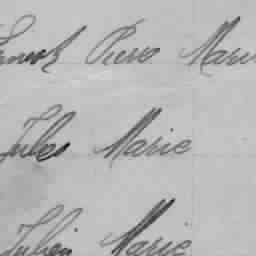 Pierre Marie
Jules Marie
Julien Marie